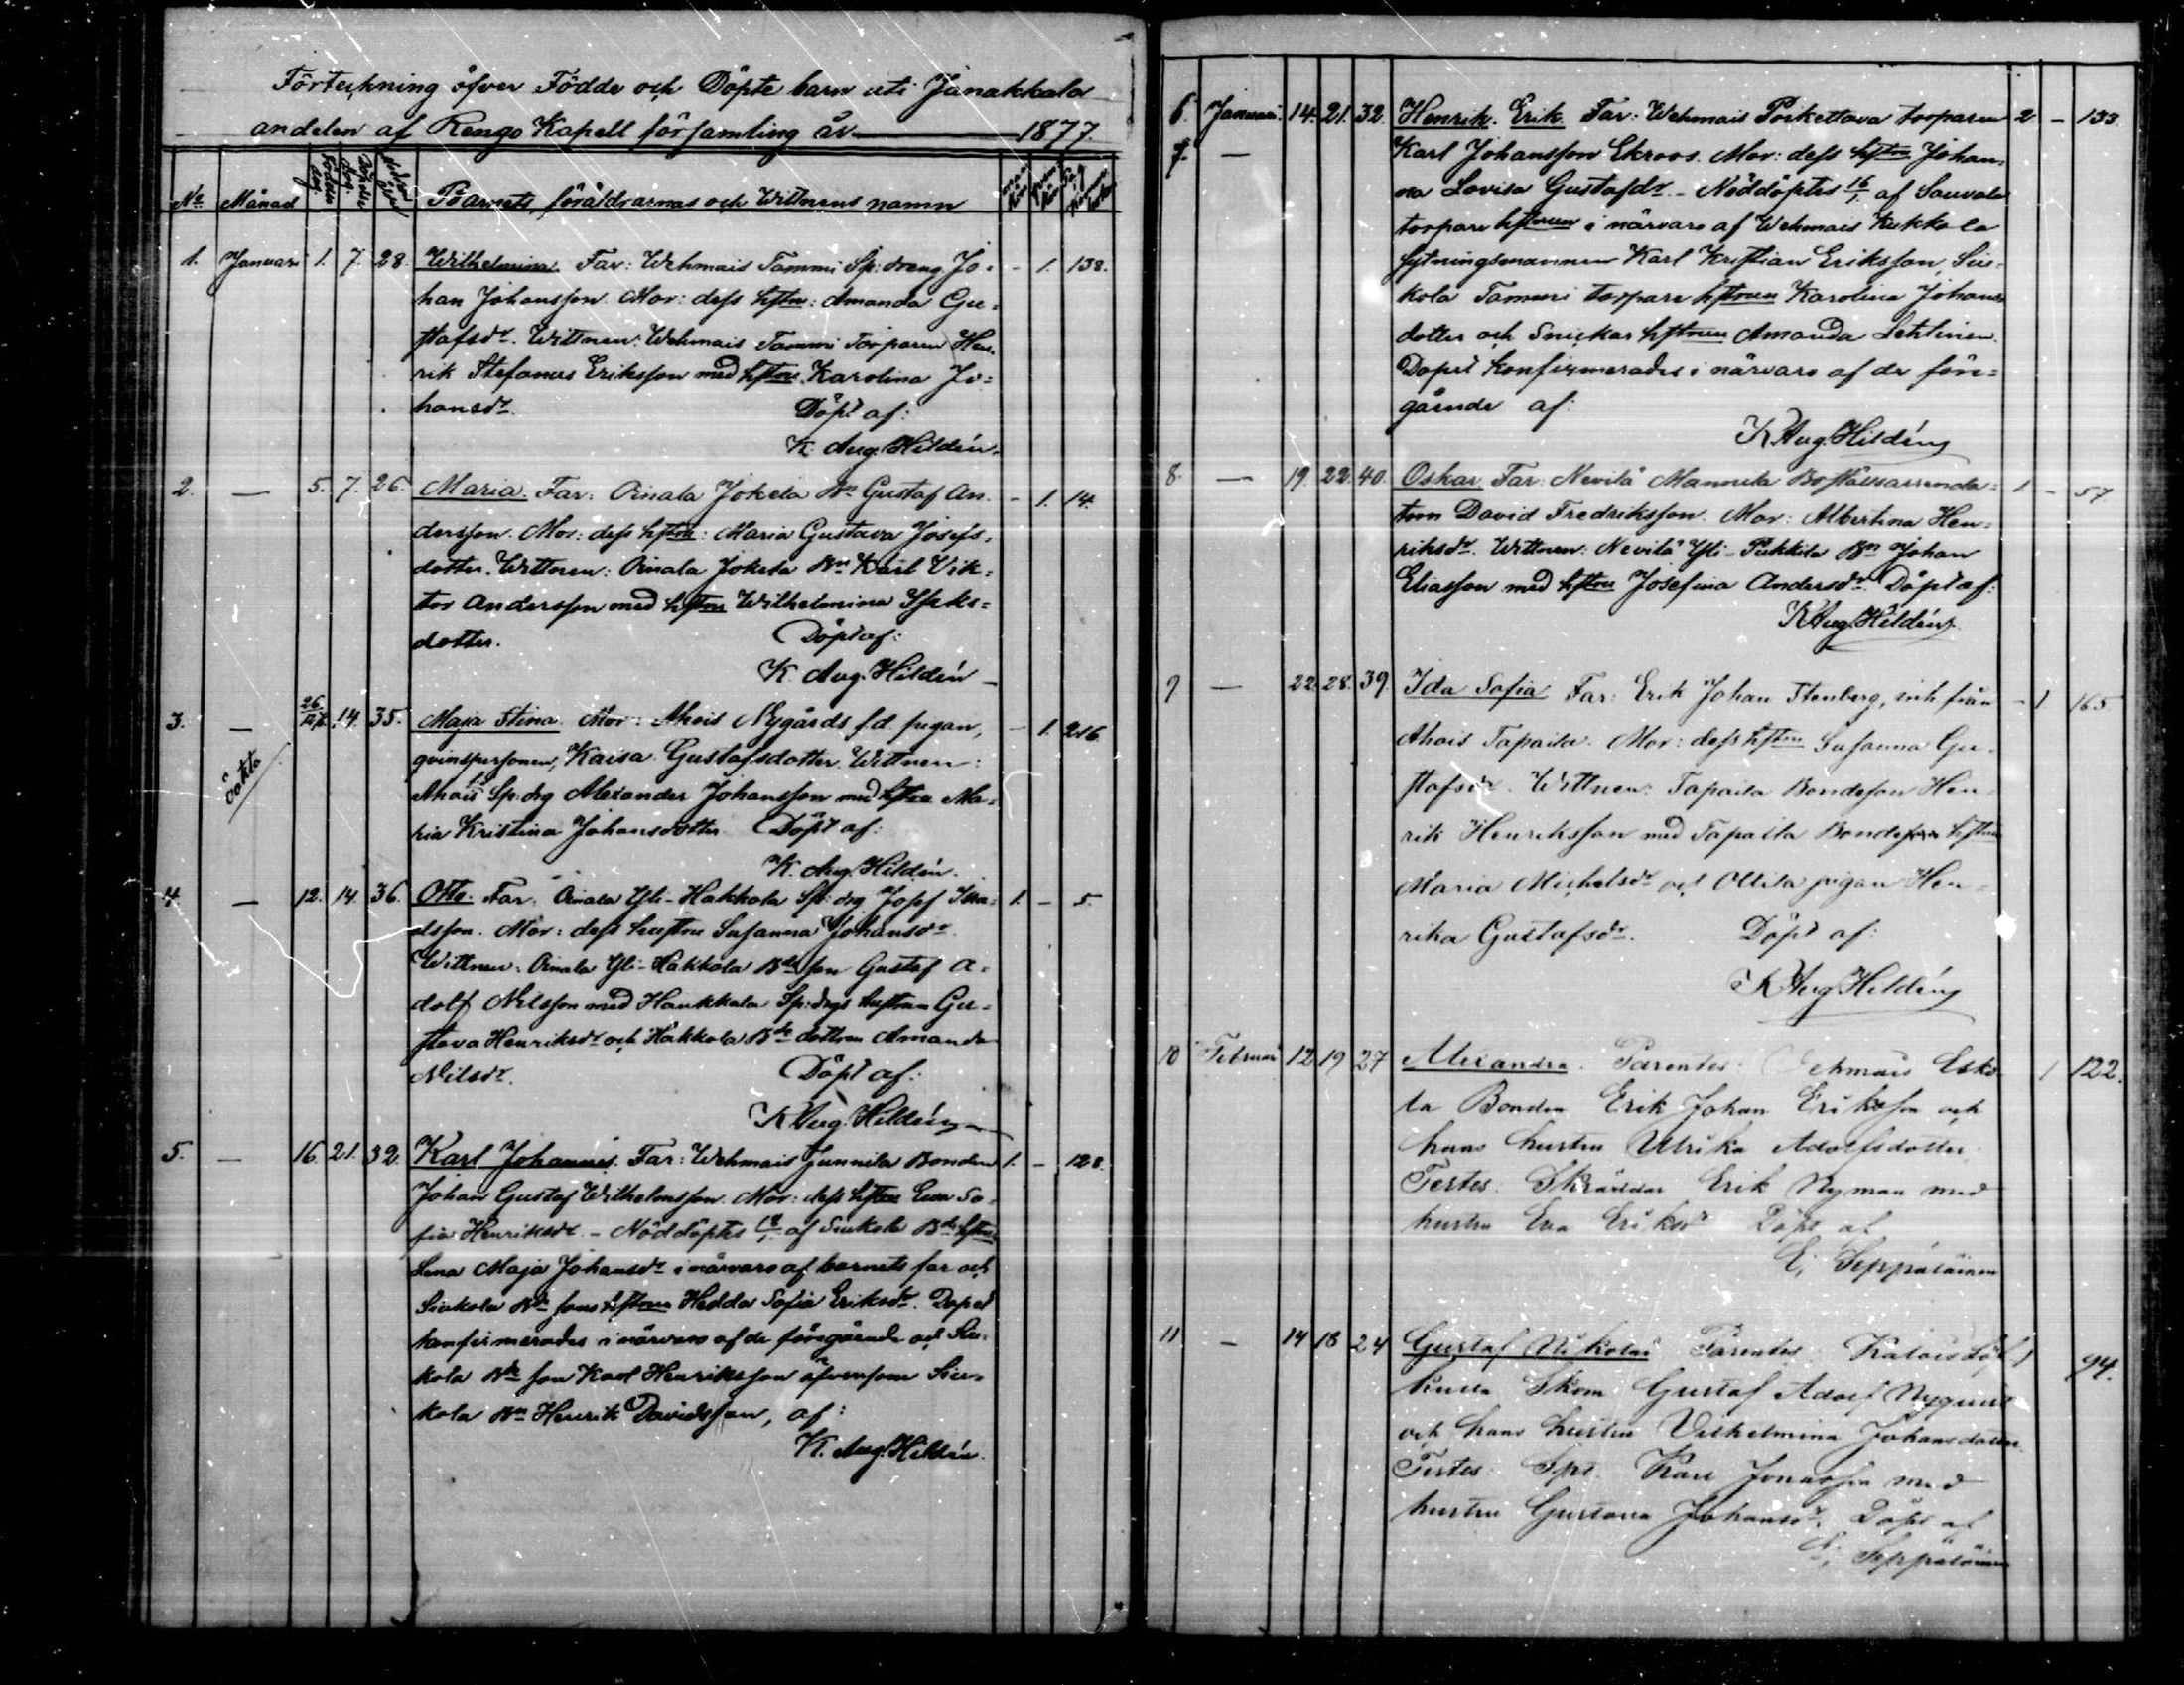 Förteckning öfver Födde och Döpte barn uti Janakkala
andelen af Rengo Kapell församling år 1877.
No Månad Födelse dag Döpelse dag Moderns ålder Barnets, föräldrarnas och Wittnens namn
1. Januari 1. 7. 28. Wilhelmina. Far: Wehmais Tammi Sp: dreng Jo= - 1. 138.
han Johansson. Mor: dess hstru: Amanda Gu=
stafsdr. Wittnen: Wehmais Tammi Torparen Hen=
rik Stefanus Eriksson med hstru Karolina Jo=
hansdr. Döpt af:
K. Aug. Hildén.
2. — 5. 7. 26. Maria. Far: Oinala Jokela Bn Gustaf An= - 1. 14.
dersson. Mor: dess hstru: Maria Gustava Josefs=
dotter. Wittnen: Oinala Jokela Bn Karl Vik=
tor Andersson med hstru Wilhelmina Isaks=
dotter. Döpt af:
K. Aug. Hildén
3. — 26/12 76. 14. 35. Maja Stina. Mor: Ahois Nygårds f.d. pigan, - 1. 216.
oäkta
qvinspersonen, Kaisa Gustafsdotter. Wittnen:
Ahois Sp: drg Alexander Johansson med hstru Ma=
ria Kristina Johansdotter Döpt af:
K. Aug. Hildén.
4. — 12. 14. 36. Otto. Far: Oinala Yli-Hakkola Sp: drg Josef Isra= 1. - 5.
elsson. Mor: dess hustru Susanna Johansdr.
Wittnen: Oinala Yli-Hakkola Bde son Gustaf A=
dolf Nilsson med Haukkala Sp: drgs hustrun Gu=
stava Henriksdr och Hakkola Bde dottren Amanda
Nilsdr. Döpt af:
K Aug. Hildén
5. — 16. 21. 32. Karl Johannes. Far: Wehmais Junnila Bonden 1. - 128.
Johan Gustaf Wilhelmsson. Mor: dess hstru Eva So=
fia Henriksdr. - Nöddöptes 18/1 af Siukola Bde hstru
Lena Maja Johansdr i närvaro af barnets far och
Siukola Bde sons hstrun Hedda Sofia Eriksdr. Dopet
konfirmerades i närvaro af de föregående och Siu=
kola Bde son Karl Henriksson äfvensom Siu=
kola Bn Henrik Davidsson, af:
K. Aug. Hildén.
6. Januari 14. 21. 32. Henrik. Erik. Far: Wehmais Porkettava torparen 2 - 133.
7. — Karl Johansson Ekroos. Mor: dess hstru Johan=
na Lovisa Gustafdr. - Nöddöptes 16/1 af Sauvala
torpare hstrun i närvaro af Wehmais Kukkola
sytningsmannen Karl Kristian Eriksson, Siu=
kola Tammi torpare hstrun Karolina Johans
dotter och Snickar hstrun Amanda Lehtinen.
Dopet konfirmerades i närvaro af de före=
gående af:
K Aug. Hildén
8. — 19. 22. 40. Oskar. Far: Nevilä Mannila Boställsarrenda= 1. - 57
torn David Fredriksson. Mor: Albertina Hen=
riksdr. Wittnen: Nevilä Yli-Pukkila Bn Johan
Eliasson med hstru Josefina Andersdr. Döpt af:
K Aug. Hildén.
9 — 22. 28. 39. Ida Sofia Far: Erik Johan Stenberg, inh. från - 1 165
Ahois Tapaila. Mor: dess hstru Susanna Gu=
stafsdr. Wittnen: Tapaila Bondeson Hen=
rik Henriksson med Tapaila Bonde hstrun
Maria Michelsdr och Ollila pigan Hen=
rika Gustafsdr. Döpt af:
K Aug. Hildén
10 Februari 12 19 27 Alexandra. Parentes: Vehmais Esko= 1 122.
la Bonden Erik Johan Eriksson och
hans hustru Ulrika Adolfsdotter.
Testes: Skräddar Erik Nyman med
hustru Eva Eriksdr Döpt af
E. Seppäläinen
11 — 14 18 24 Gustaf Nikolai Parentes: Kalois 1 94.
Gustaf Adolf Nyqvist
och hans hustru Vilhelmina Johansdotter.
Testes: Karl Jonasson med
hustru Gustava Johansdr. Döpt af
E. Seppäläinen